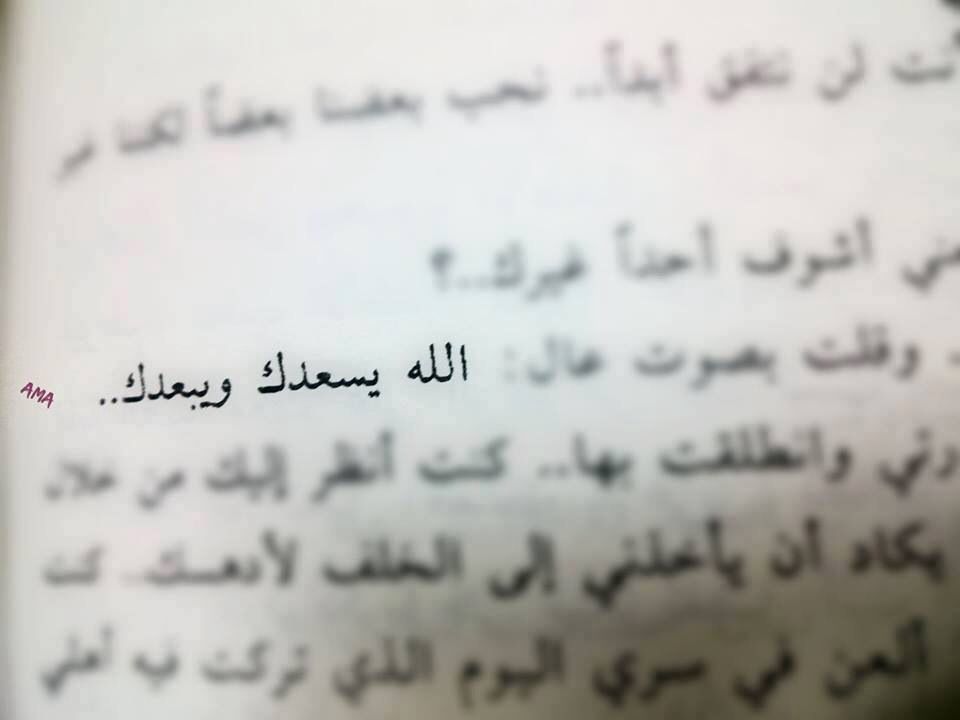 أنت لن نتفق أبداً.. نحب بعضنا بعضاً لكننا غير
أشوف أحداً غيرك..؟
وقلت بصوت عال: الله يسعدك ويبعدك..
AMA
وانطلقت بها.. كنت أنظر إليك من خلال
يكاد أن يأخذني إلى الخلف لأدهسك.. كنت
ألعن في سري اليوم الذي تركت فيه أهلي